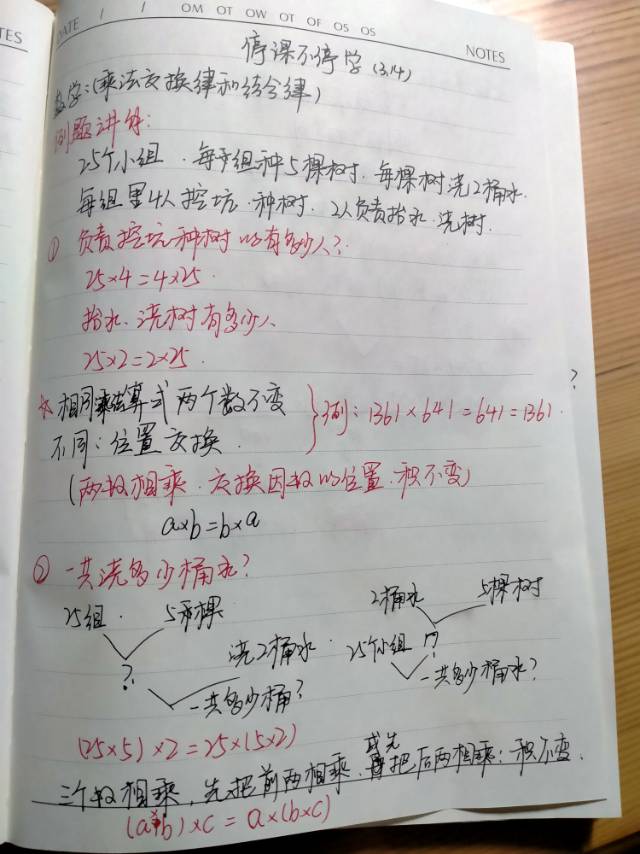 TES
DATE / / OM OT OW OT OF OS OS
NOTES
停课不停学(3.14)
数学:(乘法交换律和结合律)
例题讲解:
25个小组.每组种5棵树.每棵树浇2桶水.
每组里4人挖坑.种树.2人负责抬水.浇树.
① 负责挖坑.种树的有多少人?
25×4=4×25.
抬水.浇树有多少人
25×2=2×25.
☆相同乘法算式两个数不变
不同:位置交换.
}例:1361×641=641=1361.
?
(两数相乘.交换因数的位置.积不变)
a×b=b×a
② 一共浇多少桶水?
25组. 5棵
?. 浇2桶水.
一共多少桶?
2桶水 5棵树
25个小组 ?
一共多少桶水?
(25×5)×2=25×(5×2)
三个数相乘,先把前两相乘.或先把后两相乘:积不变.
(a×b)×c=a×(b×c)